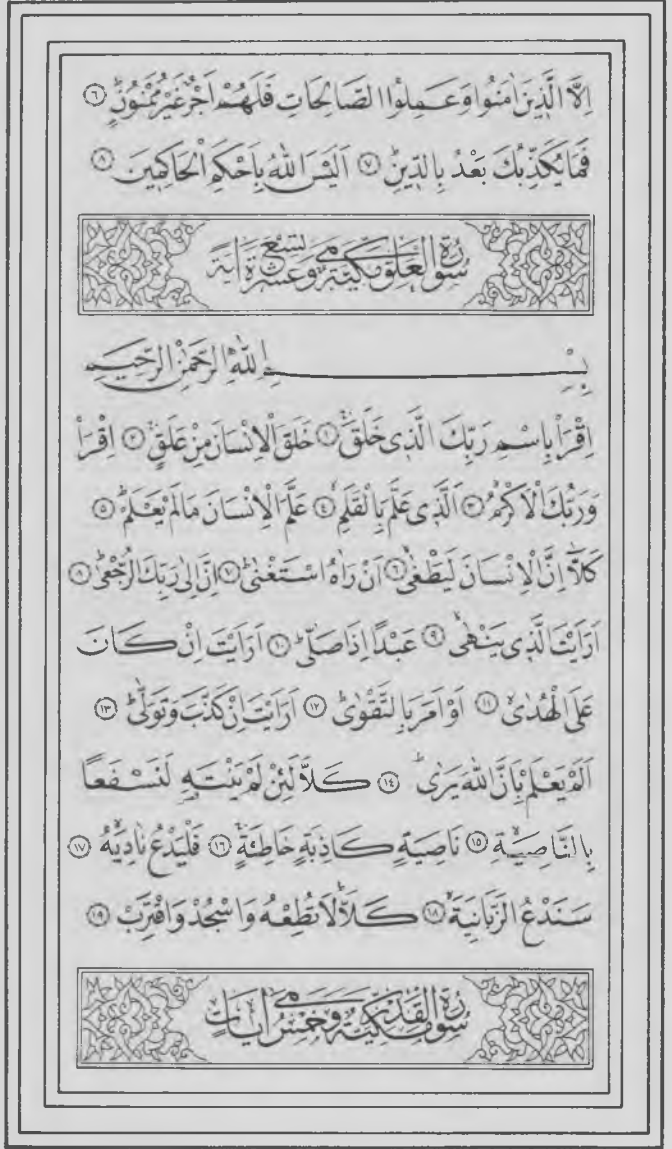 اِلَّا الَّذ۪ينَ اٰمَنُوا وَعَمِلُوا الصَّالِحَاتِ فَلَهُمْ اَجْرٌ غَيْرُ مَمْنُونٍۜ ﴿٦﴾
فَمَا يُكَذِّبُكَ بَعْدُ بِالدّ۪ينِۜ ﴿٧﴾ اَلَيْسَ اللّٰهُ بِاَحْكَمِ الْحَاكِم۪ينَ ﴿٨﴾
سُورَةُ الْعَلَقِ مَكِّيَّةٌ وَهِيَ تِسْعَ عَشْرَةَ اٰيَةً
بِسْمِ اللّٰهِ الرَّحْمٰنِ الرَّح۪يمِ
اِقْرَأْ بِاسْمِ رَبِّكَ الَّذ۪ي خَلَقَۚ ﴿١﴾ خَلَقَ الْاِنْسَانَ مِنْ عَلَقٍۚ ﴿٢﴾ اِقْرَأْ
وَرَبُّكَ الْاَكْرَمُۙ ﴿٣﴾ اَلَّذ۪ي عَلَّمَ بِالْقَلَمِۙ ﴿٤﴾ عَلَّمَ الْاِنْسَانَ مَا لَمْ يَعْلَمْۜ ﴿٥﴾
كَلَّٓا اِنَّ الْاِنْسَانَ لَيَطْغٰىۙ ﴿٦﴾ اَنْ رَاٰهُ اسْتَغْنٰىۜ ﴿٧﴾ اِنَّ اِلٰى رَبِّكَ الرُّجْعٰىۜ ﴿٨﴾
اَرَاَيْتَ الَّذ۪ي يَنْهٰىۙ ﴿٩﴾ عَبْدًا اِذَا صَلّٰىۜ ﴿١٠﴾ اَرَاَيْتَ اِنْ كَانَ
عَلَى الْهُدٰىۙ ﴿١١﴾ اَوْ اَمَرَ بِالتَّقْوٰىۜ ﴿١٢﴾ اَرَاَيْتَ اِنْ كَذَّبَ وَتَوَلّٰىۜ ﴿١٣﴾
اَلَمْ يَعْلَمْ بِاَنَّ اللّٰهَ يَرٰىۜ ﴿١٤﴾ كَلَّا لَئِنْ لَمْ يَنْتَهِ لَنَسْفَعًا
بِالنَّاصِيَةِۙ ﴿١٥﴾ نَاصِيَةٍ كَاذِبَةٍ خَاطِئَةٍۚ ﴿١٦﴾ فَلْيَدْعُ نَادِيَهُۙ ﴿١٧﴾
سَنَدْعُ الزَّبَانِيَةَۙ ﴿١٨﴾ كَلَّاۜ لَا تُطِعْهُ وَاسْجُدْ وَاقْتَرِبْ ﴿١٩﴾
سُورَةُ الْقَدْرِ مَكِّيَّةٌ وَهِيَ خَمْسُ اٰيَاتٍ